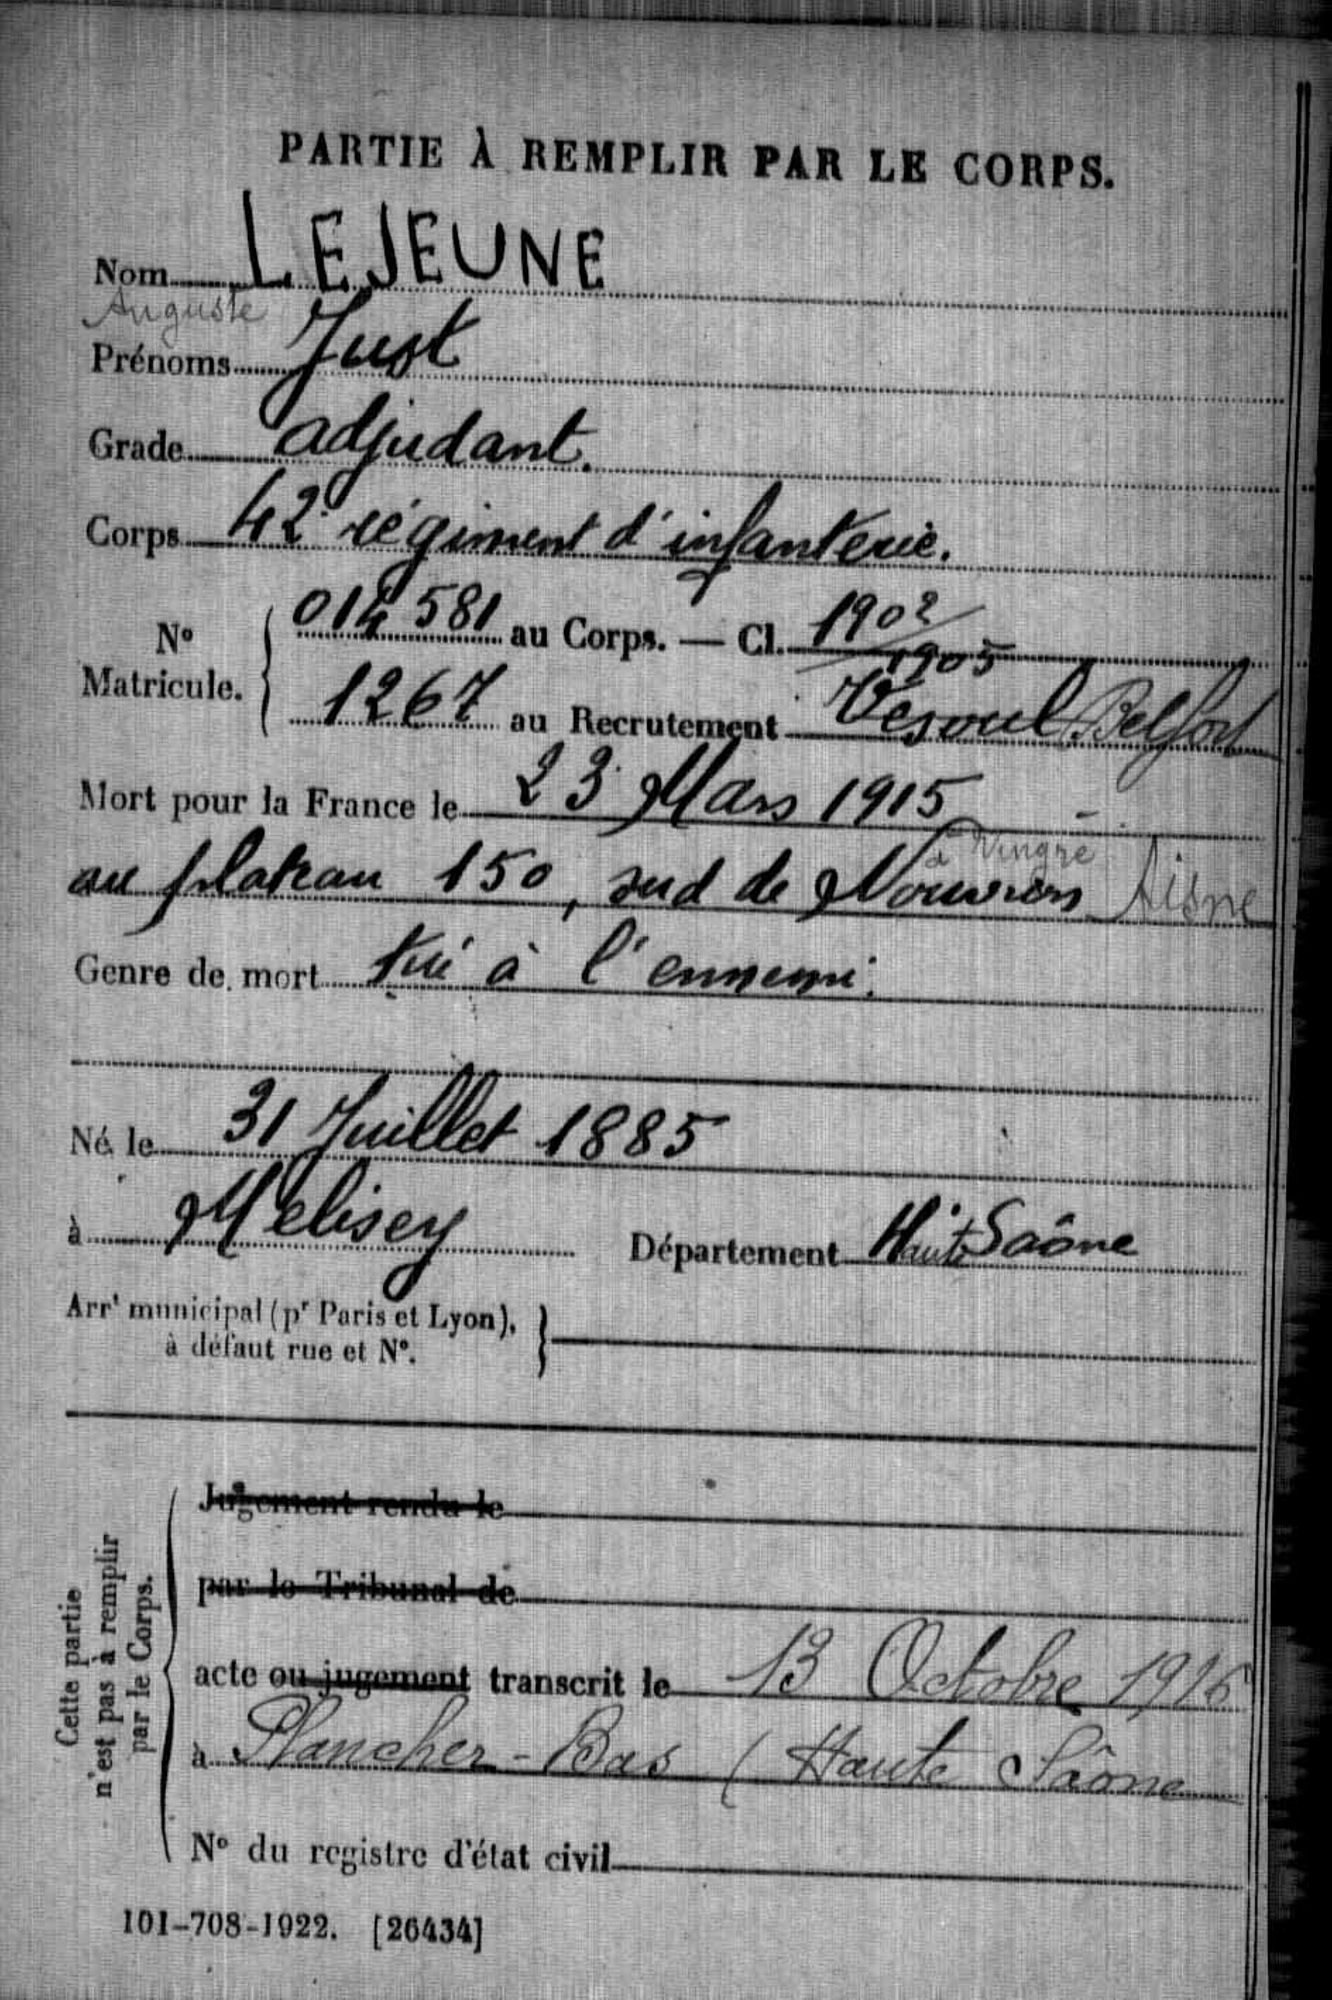 PARTIE À REMPLIR PAR LE CORPS.
Nom LEJEUNE
Auguste
Prénoms Just
Grade adjudant.
Corps 42e régiment d'infanterie.
N° Matricule. 014581 au Corps. — Cl. 1902/1905
1267 au Recrutement Vesoul Belfort
Mort pour la France le 23 Mars 1915
à Vingré
au plateau 150, sud de Nouvron Aisne
Genre de mort tué à l'ennemi.
Né le 31 Juillet 1885
à Melisey Département Haute Saône
Arrt municipal (pr Paris et Lyon),
à défaut rue et N°.
Cette partie
n'est pas à remplir
par le Corps.
Jugement rendu le
par le Tribunal de
acte ou jugement transcrit le 13 Octobre 1916
à Plancher-Bas (Haute Saône
N° du registre d'état civil
101-708-1922. [26434]